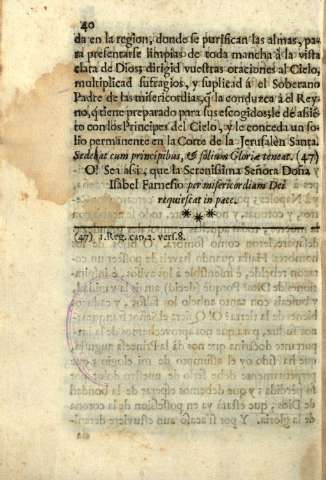 40
da en la region, donde se purifican las almas, pa-
ra presentarse limpias de toda mancha à la vista
clara de Dios; dirigid vuestras oraciones al Cielo,
multiplicad sufragios, y suplicad à el Soberano
Padre de las misericordias, q̃ la conduzca à el Rey-
no, q̃ tiene preparado para sus escogidos, le dè asiẽ-
to con los Principes del Cielo, y le conceda un so-
lio permanente en la Corte de la Jerusalèn Santa.
Sedebat cum principibus, & solium Gloriæ teneat. (47)
O! Sea asi:, que la Serenissima Señora Doña
Isabel Farnesio per misericordiam Dei
requiescat in pace.
* * *
(47) 1. Reg. cap. 2. vers. 8.